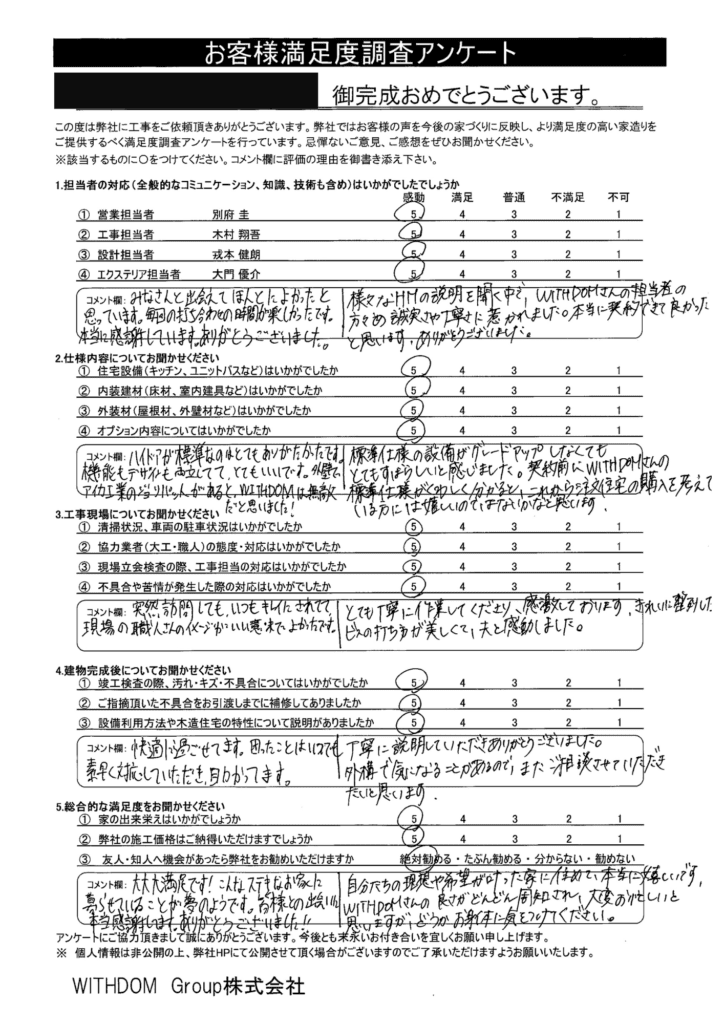 お客様満足度調査アンケート
御完成おめでとうございます。
この度は弊社に工事をご依頼頂きありがとうございます。弊社ではお客様の声を今後の家づくりに反映し、より満足度の高い家造りを
ご提供するべく満足度調査アンケートを行っています。忌憚ないご意見、ご感想をぜひお聞かせください。
※該当するものに〇をつけてください。コメント欄に評価の理由を御書き添え下さい。
1.担当者の対応(全般的なコミュニケーション、知識、技術も含め)はいかがでしたでしょうか
感動 満足 普通 不満足 不可
① 営業担当者 別府 圭 5 4 3 2 1
② 工事担当者 木村 翔吾 5 4 3 2 1
③ 設計担当者 戎本 健朗 5 4 3 2 1
④ エクステリア担当者 大門 優介 5 4 3 2 1
コメント欄: みなさんと出会えてほんとによかったと
思っています。毎回の打ち合わせの時間が楽しかったです。
本当に感謝しています。ありがとうございました。
様々なHMの説明を聞く中で、WITHDOMさんの担当者の
方々の誠実さや丁寧さに惹かれました。本当に契約できて良かった
と思います。ありがとうございました。
2.仕様内容についてお聞かせください
① 住宅設備(キッチン、ユニットバスなど)はいかがでしたか 5 4 3 2 1
② 内装建材(床材、室内建具など)はいかがでしたか 5 4 3 2 1
③ 外装材(屋根材、外壁材など)はいかがでしたか 5 4 3 2 1
④ オプション内容についてはいかがでしたか 5 4 3 2 1
コメント欄: ハイドアが標準なのはとてもありがたかったです。
機能もデザインも両立してて、とてもいいです。外壁で
アイカ工業のジョリパットがあると、WITHDOMは無敵
だと思いました!
標準仕様の設備がグレードアップしなくても
とてもすばらしいと感じました。契約前にWITHDOMさんの
標準仕様がくわしく分かると、これから注文住宅の購入を考えて
いる方には嬉しいのではないかなと思います。
3.工事現場についてお聞かせください
① 清掃状況、車両の駐車状況はいかがでしたか 5 4 3 2 1
② 協力業者(大工・職人)の態度・対応はいかがでしたか 5 4 3 2 1
③ 現場立会検査の際、工事担当の対応はいかがでしたか 5 4 3 2 1
④ 不具合や苦情が発生した際の対応はいかがでしたか 5 4 3 2 1
コメント欄: 突然訪問しても、いつもキレイにされてて、
現場の職人さんのイメージがいい意味でよかったです。
とても丁寧に作業してくださり、感激しております。きれいに整列した
ビスの打ち方が美しくて、夫と感動しました。
4.建物完成後についてお聞かせください
① 竣工検査の際、汚れ・キズ・不具合についてはいかがでしたか 5 4 3 2 1
② ご指摘頂いた不具合をお引渡しまでに補修してありましたか 5 4 3 2 1
③ 設備利用方法や木造住宅の特性について説明がありましたか 5 4 3 2 1
コメント欄: 快適に過ごせてます。困ったことはいつでも
素早く対応していただき、助かってます。
丁寧に説明していただきありがとうございました。
外構で気になることがあるので、またご相談させていただき
たいと思います。
5.総合的な満足度をお聞かせください
① 家の出来栄えはいかがでしょうか 5 4 3 2 1
② 弊社の施工価格はご納得いただけますでしょうか 5 4 3 2 1
③ 友人・知人へ機会があったら弊社をお勧めいただけますか 絶対勧める・たぶん勧める・分からない・勧めない
コメント欄: 大大大満足です!こんなステキなお家に
暮らせていることが夢のようです。皆様との出会いに
本当感謝します。ありがとうございました!!
自分たちの理想や希望が叶った家に住めて、本当に嬉しいです。
WITHDOMさんの良さがどんどん周知され、大変お忙しいと
思いますが、どうかお身体に気をつけてください。
アンケートにご協力頂きまして誠にありがとうございます。今後とも末永いお付き合いを宜しくお願い申し上げます。
※ 個人情報は非公開の上、弊社HPにて公開させて頂く場合がございますのでご了承いただけますようお願いいたします。
WITHDOM Group株式会社